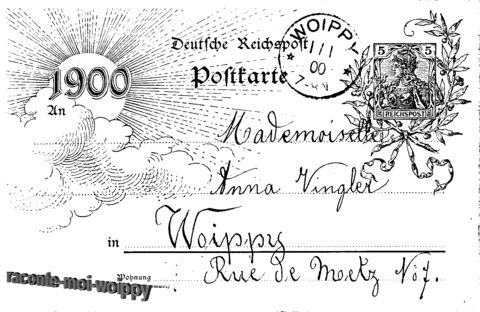 WOIPPY
1/1
00
7-8V
Deutsche Reichspost
Postkarte
5 5
REICHSPOST
1900
An
Mademoiselle
Anna Vingler
in Woippy
Wohnung
Rue de Metz No 7.
raconte-moi-woippy